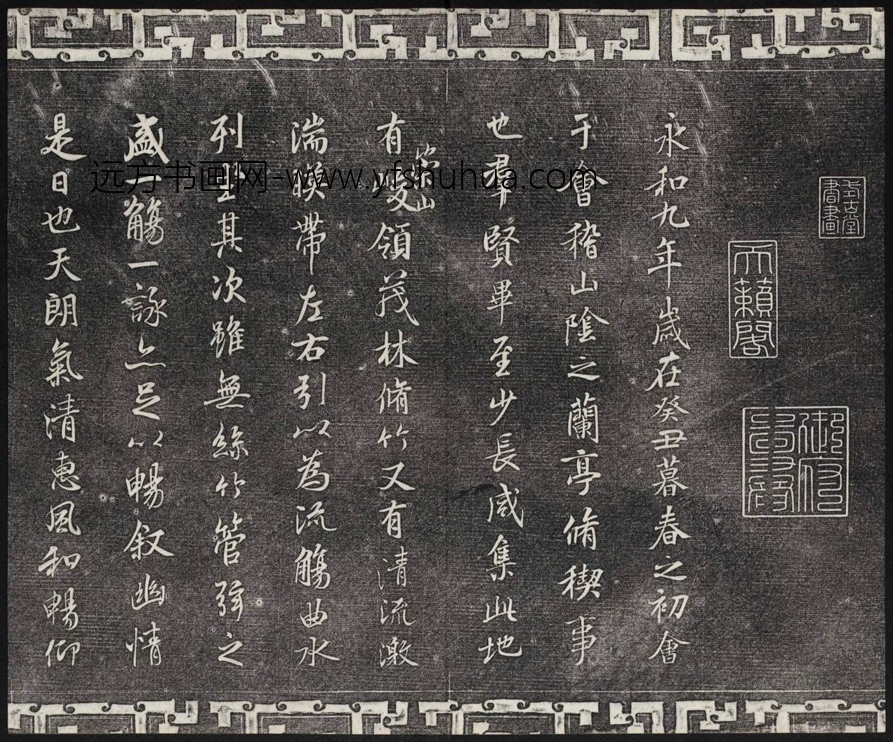 天籟閣
永和九年歲在癸丑暮春之初會
于會稽山陰之蘭亭脩稧事
也羣賢畢至少長咸集此地
有崇山峻領茂林脩竹又有清流激
湍暎帶左右引以為流觴曲水
列坐其次雖無絲竹管弦之
盛一觴一詠亦足以暢叙幽情
是日也天朗氣清惠風和暢仰
远方书画网-www.yfshuhua.com